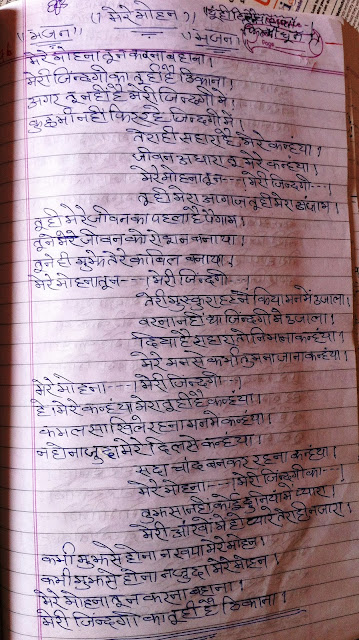 "मेरे मोहन"
"भजन" "भजन"
मेरे मोहना तून करना बहाना।
मेरी जिन्दगी का तू ही है ठिकाना।
अगर तू नहीं है मेरी जिन्दगी में।
कुछ भी नहीं फिर है जिन्दगी में।
तेरा ही सहारा है मेरे कन्हैया।
जीवन आधारा तू मेरे कन्हैया।
मेरे मोहना तून----। मेरी जिन्दगी---।
तू ही मेरा आगाज तू ही मेरा अंजाम।
तू ही मेरे जीवन का पहला है पैगाम।
तूने मेरे जीवन को रोशन बनाया।
तूने ही मुझे तेरे काबिल बनाया।
मेरे मोहना तून----। मेरी जिन्दगी---।
तेरी मुस्कुराहट ने किया मन में उजाला।
वरना नहीं था जिन्दगी में उजाला।
दिया है सहारा तो निभाना कन्हैया।
मेरे मन से कभी तुम न जाना कन्हैया।
मेरे मोहना----। मेरी जिन्दगी---।
है। मेरे कन्हैया मेरा तू ही है कन्हैया।
कमल सा खिले रहना मन में कन्हैया।
न होना जुदा मेरे दिल से कन्हैया।
सदा चाँद बनकर रहना कन्हैया।
मेरे मोहना---। मेरी जिन्दगी का---।
तुझ सा नहीं कोई दुनिया में प्यारा।
मेरी आँखों में हो प्यारे तेरा ही नजारा।
कभी मुझसे होना न खफा मेरे मोहन।
कभी मुझसे होना न जुदा मेरे मोहन।
मेरे मोहना तून करना बहाना।
मेरी जिन्दगी का तू ही है ठिकाना।